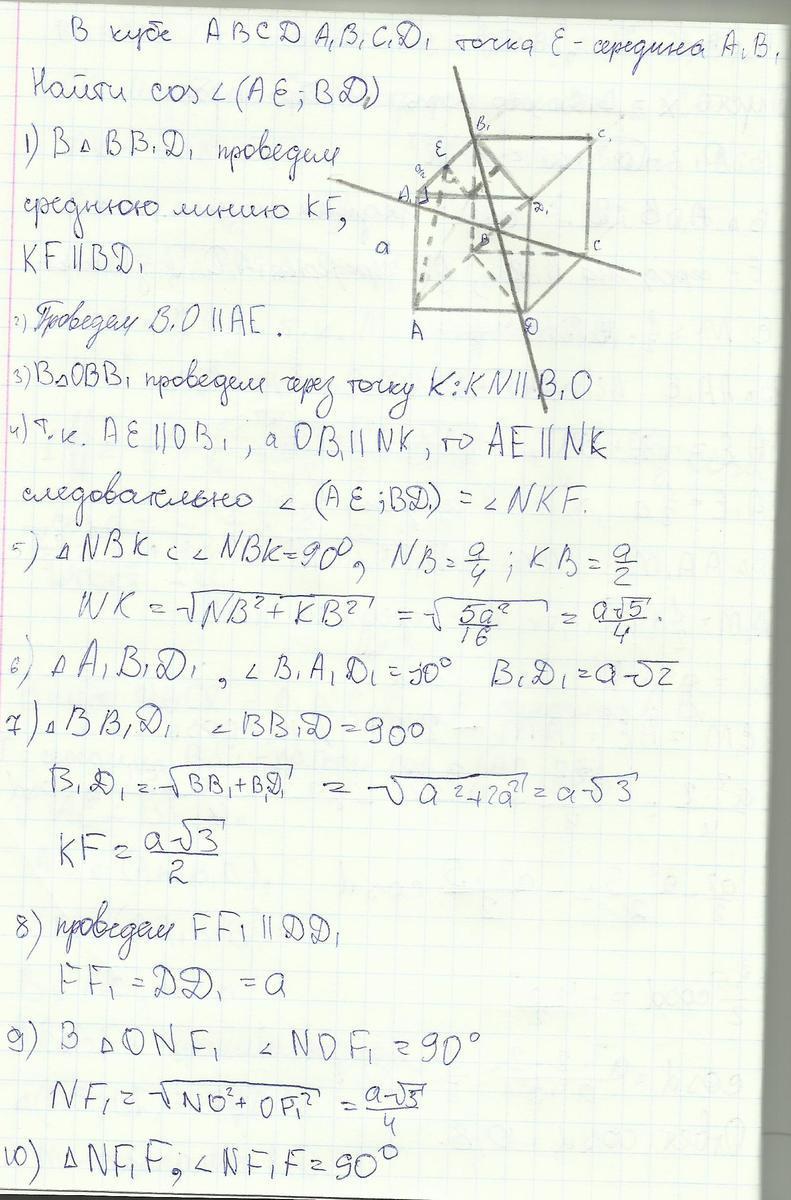 В кубе ABCDA₁B₁C₁D₁ точка E - середина A₁B₁
Найти cos∠(AE; BD₁)
1) В △ BB₁D₁ проведем
среднюю линию KF,
KF || BD₁
2) Проведем B₁O || AE.
3) В △OBB₁ проведем через точку K: KN || B₁O
4) т.к. AE || OB₁, а OB₁ || NK, то AE || NK
следовательно ∠(AE; BD₁) = ∠NKF.
5) △ NBK с ∠NBK=90°, NB = a/4 ; KB = a/2
NK = √(NB² + KB²) = √(5a²/16) = a√5/4.
6) △ A₁B₁D₁, ∠B₁A₁D₁ = 90° B₁D₁ = a√2
7) △ BB₁D₁ ∠BB₁D = 90°
B₁D₁ = √(BB₁+B₁D₁) = √(a²+2a²) = a√3
KF = a√3/2
8) проведем FF₁ || DD₁
FF₁ = DD₁ = a
9) В △ONF₁ ∠NOF₁ = 90°
NF₁ = √(NO² + OF₁²) = a√5/4
10) △NF₁F, ∠NF₁F = 90°
B₁
C₁
E
A₁
D₁
a
B
C
A
D